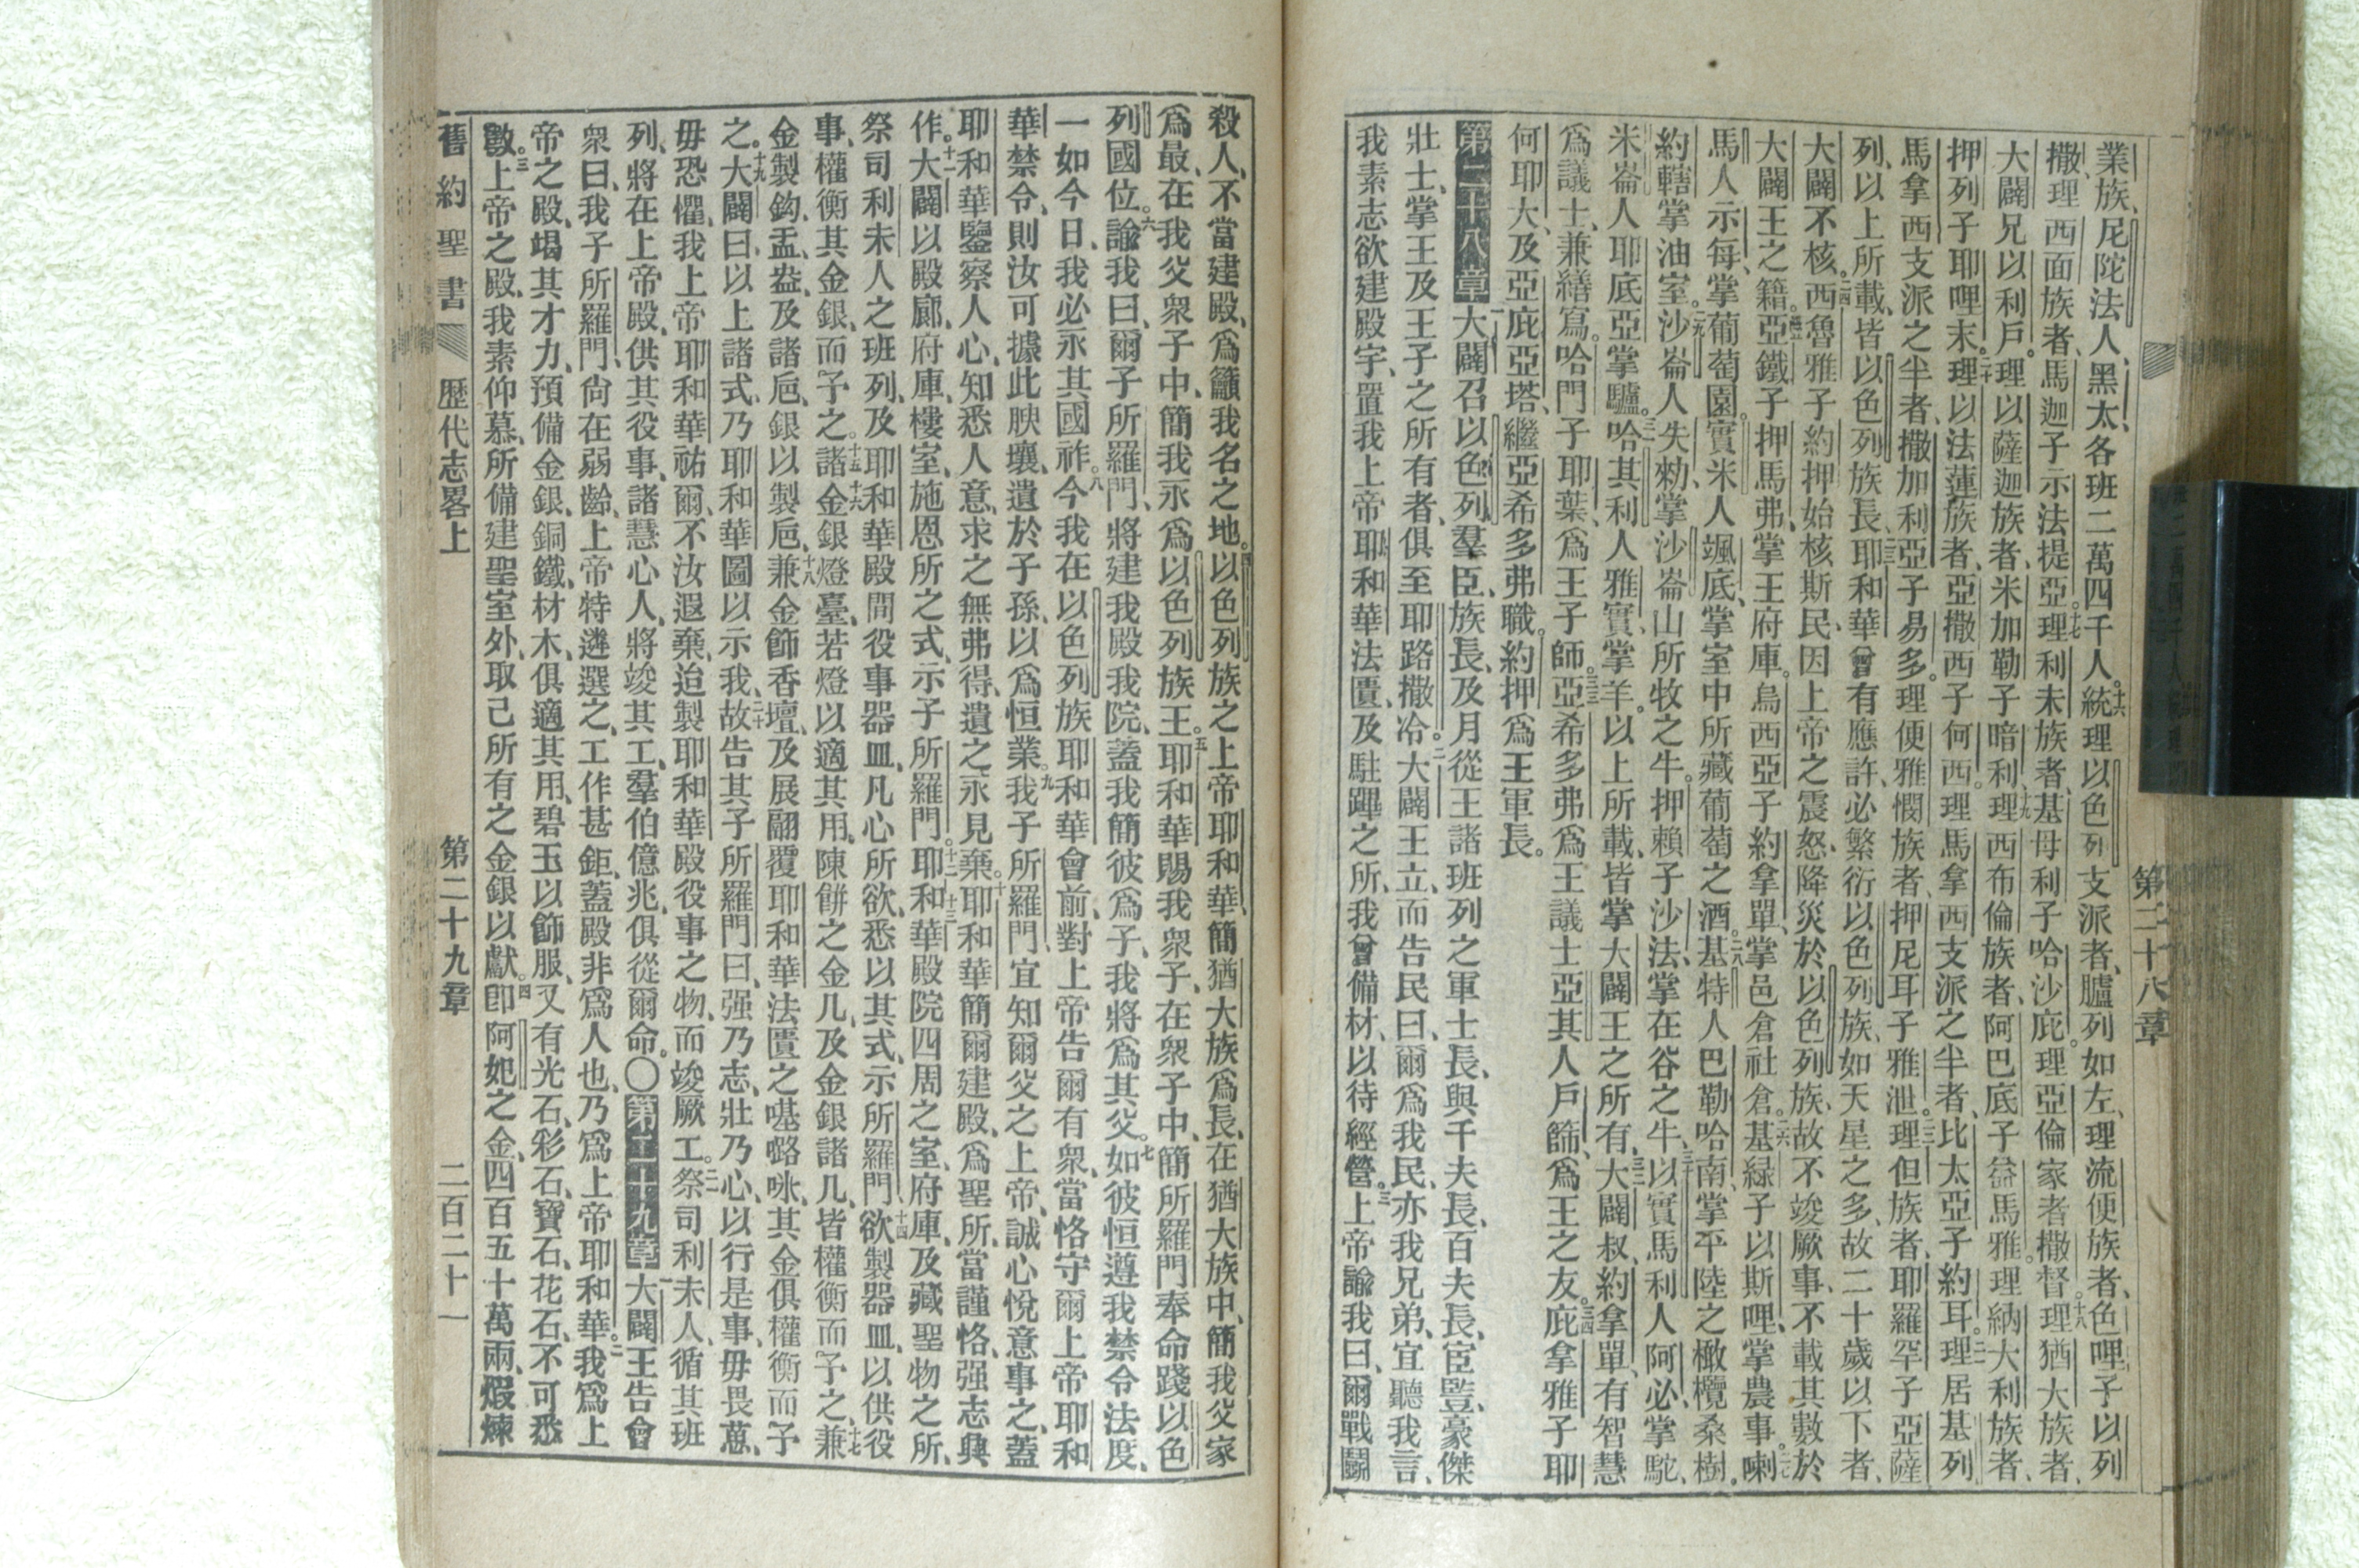 業族、尼陀法人、黑太、各班二萬四千人。十六統理以色列支派者、臚列如左、理流便族者、色哩子以列
撒、理西面族者、馬迦子示法提亞。十七理利未族者、基母利子哈沙庇。理亞倫家者、撒督。十八理猶大族者、
大闢兄以利戶。理以薩迦族者、米加勒子暗利、十九理西布倫族者、阿巴底子益馬雅。理納大利族者、
押列子耶哩末。二十理以法蓮族者、亞撒西子何西。理馬拿西支派之半者、比太亞子約耳。二一理居基列
馬拿西支派之半者、撒加利亞子易多。理便雅憫族者、押尼耳子雅泄。二二理但族者、耶羅罕子亞薩
列、以上所載、皆以色列族長、二三耶和華曾有應許、必繁衍以色列族、如天星之多、故二十歲以下者、
大闢不核。二四西魯雅子約押始核斯民、因上帝之震怒、降災於以色列族、故不竣厥事、不載其數於
大闢王之籍。二五亞鐵子押馬弗、掌王府庫。烏西亞子約拿單、掌邑倉社倉。二六基綠子以斯哩、掌農事。二七喇
馬人示每、掌葡萄園。實米人颯底、掌室中所藏葡萄之酒。二八基特人巴勒哈南、掌平陸之橄欖桑樹。
約轄掌油室。二九沙崙人失勑、掌沙崙山所牧之牛。押賴子沙法、掌在谷之牛、三十以實馬利人阿必、掌駝、
米崙人耶底亞掌驢。三一哈其利人雅實、掌羊。以上所載、皆掌大闢王之所有、三二大闢叔、約拿單、有智慧
爲議士、兼繕寫。哈門子耶葉、爲王子師。三三亞希多弗爲王議士、亞其人戶篩、爲王之友。三四庇拿雅子耶
何耶大、及亞庇亞塔、繼亞希多弗職。約押爲王軍長。
第二十八章一大闢召以色列羣臣、族長、及月從王諸班列之軍士長、與千夫長、百夫長、宦豎、豪傑
壯士、掌王及王子之所有者、俱至耶路撒冷。二大闢王立、而告民曰、爾爲我民、亦我兄弟、宜聽我言、
我素志欲建殿宇、置我上帝耶和華法匱、及駐蹕之所、我曾備材、以待經營。三上帝諭我曰、爾戰鬬
第二十八章
殺人、不當建殿、爲籲我名之地。四以色列族之上帝耶和華、簡猶大族爲長、在猶大族中、簡我父家
爲最、在我父衆子中、簡我永爲以色列族王。五耶和華賜我衆子、在衆子中、簡所羅門奉命踐以色
列國位。六諭我曰、爾子所羅門、將建我殿我院、蓋我簡彼爲子、我將爲其父。七如彼恒遵我禁令法度、
一如今日、我必永其國祚。八今我在以色列族耶和華會前、對上帝告爾有衆、當恪守爾上帝耶和
華禁令、則汝可據此腴壤、遺於子孫、以爲恒業。九我子所羅門、宜知爾父之上帝、誠心悅意事之、蓋
耶和華鑒察人心、知悉人意、求之無弗得、遺之永見棄。十耶和華簡爾建殿、爲聖所、當謹恪、强志與
作。十一大闢以殿廊、府庫、樓室、施恩所之式、示子所羅門。十二耶和華殿院四周之室、府庫、及藏聖物之所、
祭司利未人之班列、及耶和華殿間役事器皿、凡心所欲、悉以其式、示所羅門、十四欲製器皿、以供役
事、權衡其金銀、而予之。十五諸金銀燈臺、若燈以適其用、十六陳餅之金几、及金銀諸几、皆權衡而予之、十七兼
金製鈎、盂、盎、及諸巵、銀以製巵、十八兼金飾香壇、及展翮覆耶和華法匱之㗭𡀔㖠、其金俱權衡而予
之。十九大闢曰、以上諸式、乃耶和華圖以示我、二十故告其子所羅門曰、强乃志、壯乃心、以行是事、毋畏葸、
毋恐懼、我上帝耶和華祐爾、不汝遐棄、迨製耶和華殿役事之物、而竣厥工。二一祭司利未人、循其班
列、將在上帝殿、供其役事、諸慧心人、將竣其工、羣伯億兆、俱從爾命。〇第二十九章一大闢王告會
衆曰、我子所羅門、尙在弱齡、上帝特遴選之、工作甚鉅、蓋殿非爲人也、乃爲上帝耶和華。二我爲上
帝之殿、竭其才力、預備金、銀、銅、鐵、材木、俱適其用、碧玉以飾服、又有光石、彩石、寶石、花石、不可悉
數。三上帝之殿、我素仰慕、所備建聖室外、取己所有之金銀以獻。四卽阿妃之金、四百五十萬兩、煆煉
舊約聖書 歷代志畧上 第二十九章 二百二十一